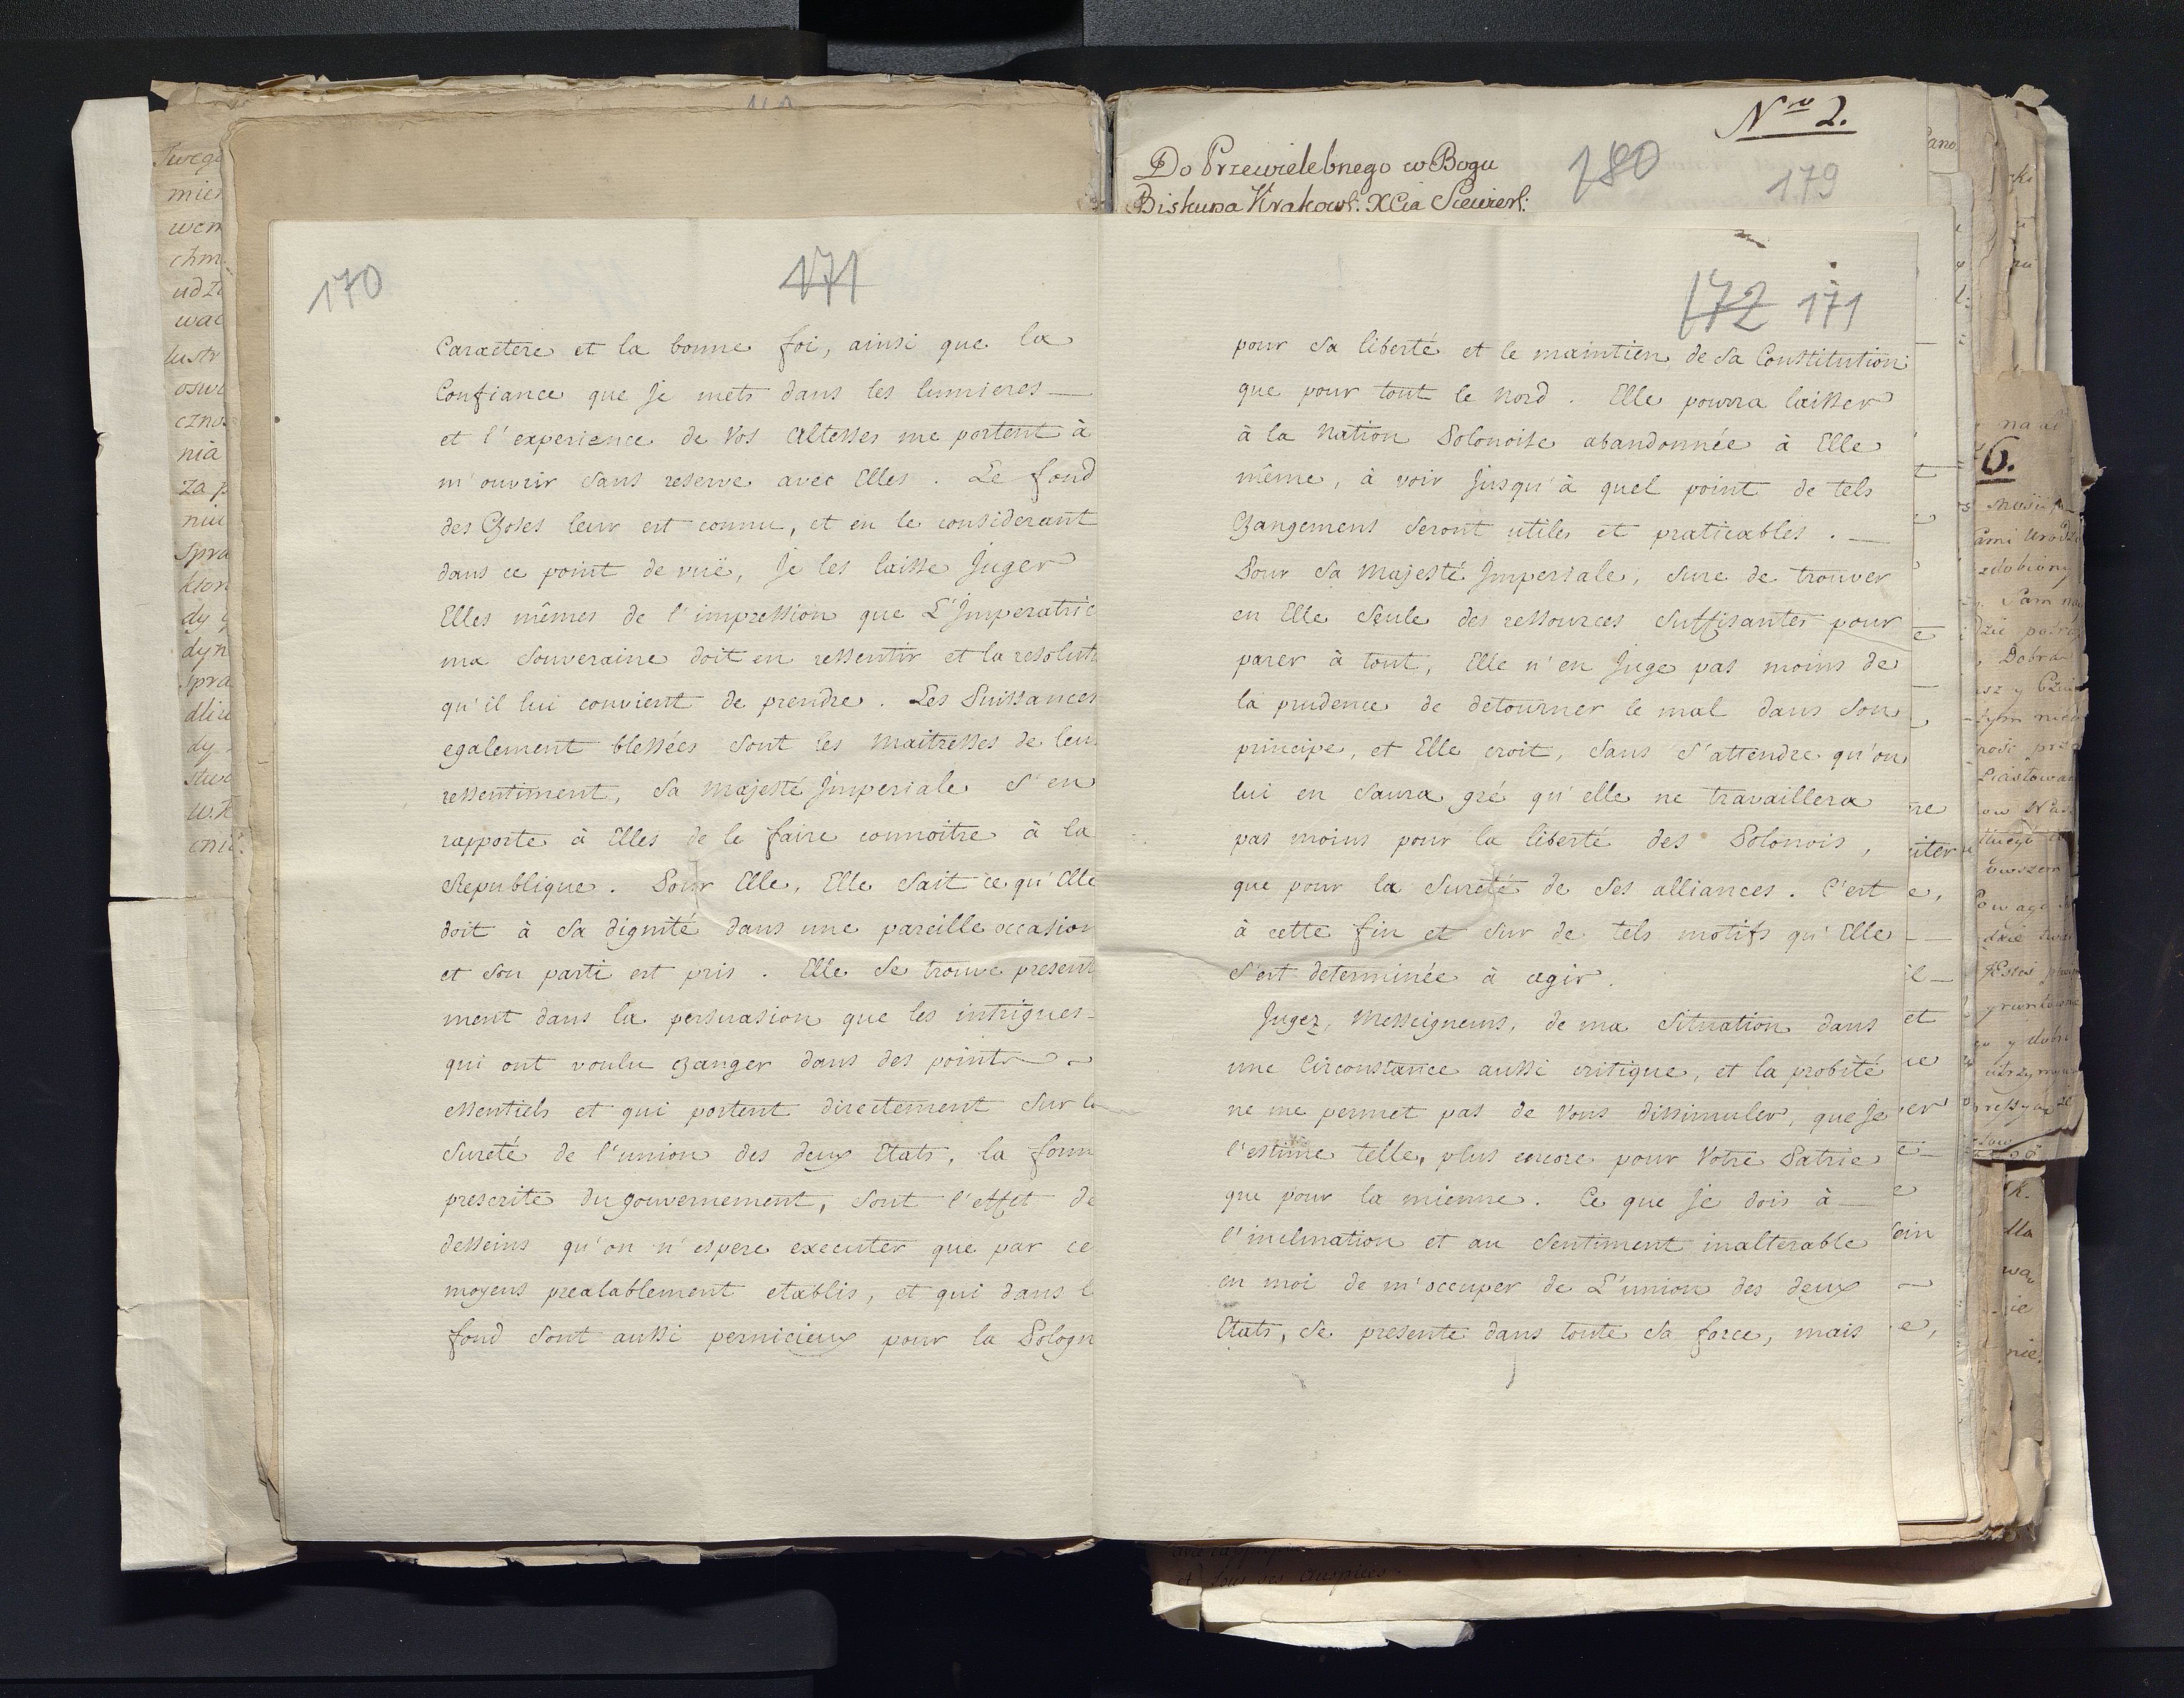 170
171
Caractere et la bonne foi, ainsi que la
Confiance que je mets dans les lumieres
et l'experience de Vos Altesses me portent à
m'ouvrir sans reserve avec Elles. Le fond
des Choses leur est connu, et en le considerant
dans ce point de vuë, je les laisse juger
Elles mêmes de l'impression que L'Imperatric
ma Souveraine doit en ressentir et la resoluti
qu'il lui convient de prendre. Les Puissances
egalement blessées sont les maitresses de leur
ressentiment, Sa Majesté Imperiale s'en
rapporte à Elles de le faire connoitre à la
Republique. Pour Elle, Elle sait ce qu'Elle
doit à sa dignité dans une pareille occasion
et son parti est pris. Elle se trouve present
ment dans la persuasion que les intrigues
qui ont voulu changer dans des points
essentiels et qui portent directement sur la
sureté de l'union des deux Etats, la form
prescrite du gouvernement, sont l'effet de
desseins qu'on n'espere executer que par ce
moyens prealablement etablis, et qui dans l
fond sont aussi pernicieux pour la Pologn
Nro 2.
Do Przewielebnego w Bogu
Biskupa Krakows: XCia Siewiers:
180
179
172 171
pour sa liberté et le maintien de sa Constitution
que pour tout le Nord. Elle pourra laisser
à la Nation Polonoise abandonnée à Elle
même, à voir jusqu'à quel point de tels
changemens seront utiles et praticables.
Pour Sa Majesté Imperiale, sure de trouver
en Elle seule des ressources suffisantes pour
parer à tout, Elle n'en juge pas moins de
la prudence de detourner le mal dans son
principe, et Elle croit, sans s'attendre qu'on
lui en saura gré qu'elle ne travaillera
pas moins pour la liberté des Polonois,
que pour la sureté de ses alliances. C'est
à cette fin et sur de tels motifs qu'Elle
s'est determinée à agir.
Jugez, Messeigneurs, de ma situation dans
une Circonstance aussi critique, et la probité
ne me permet pas de Vous dissimuler, que je
l'estime telle, plus encore pour Votre Patrie
que pour la mienne. Ce que je dois à
l'inclination et au sentiment inalterable
en moi de m'occuper de L'union des deux
Etats, se presente dans toute sa force, mais
6.
et sous ses auspices.